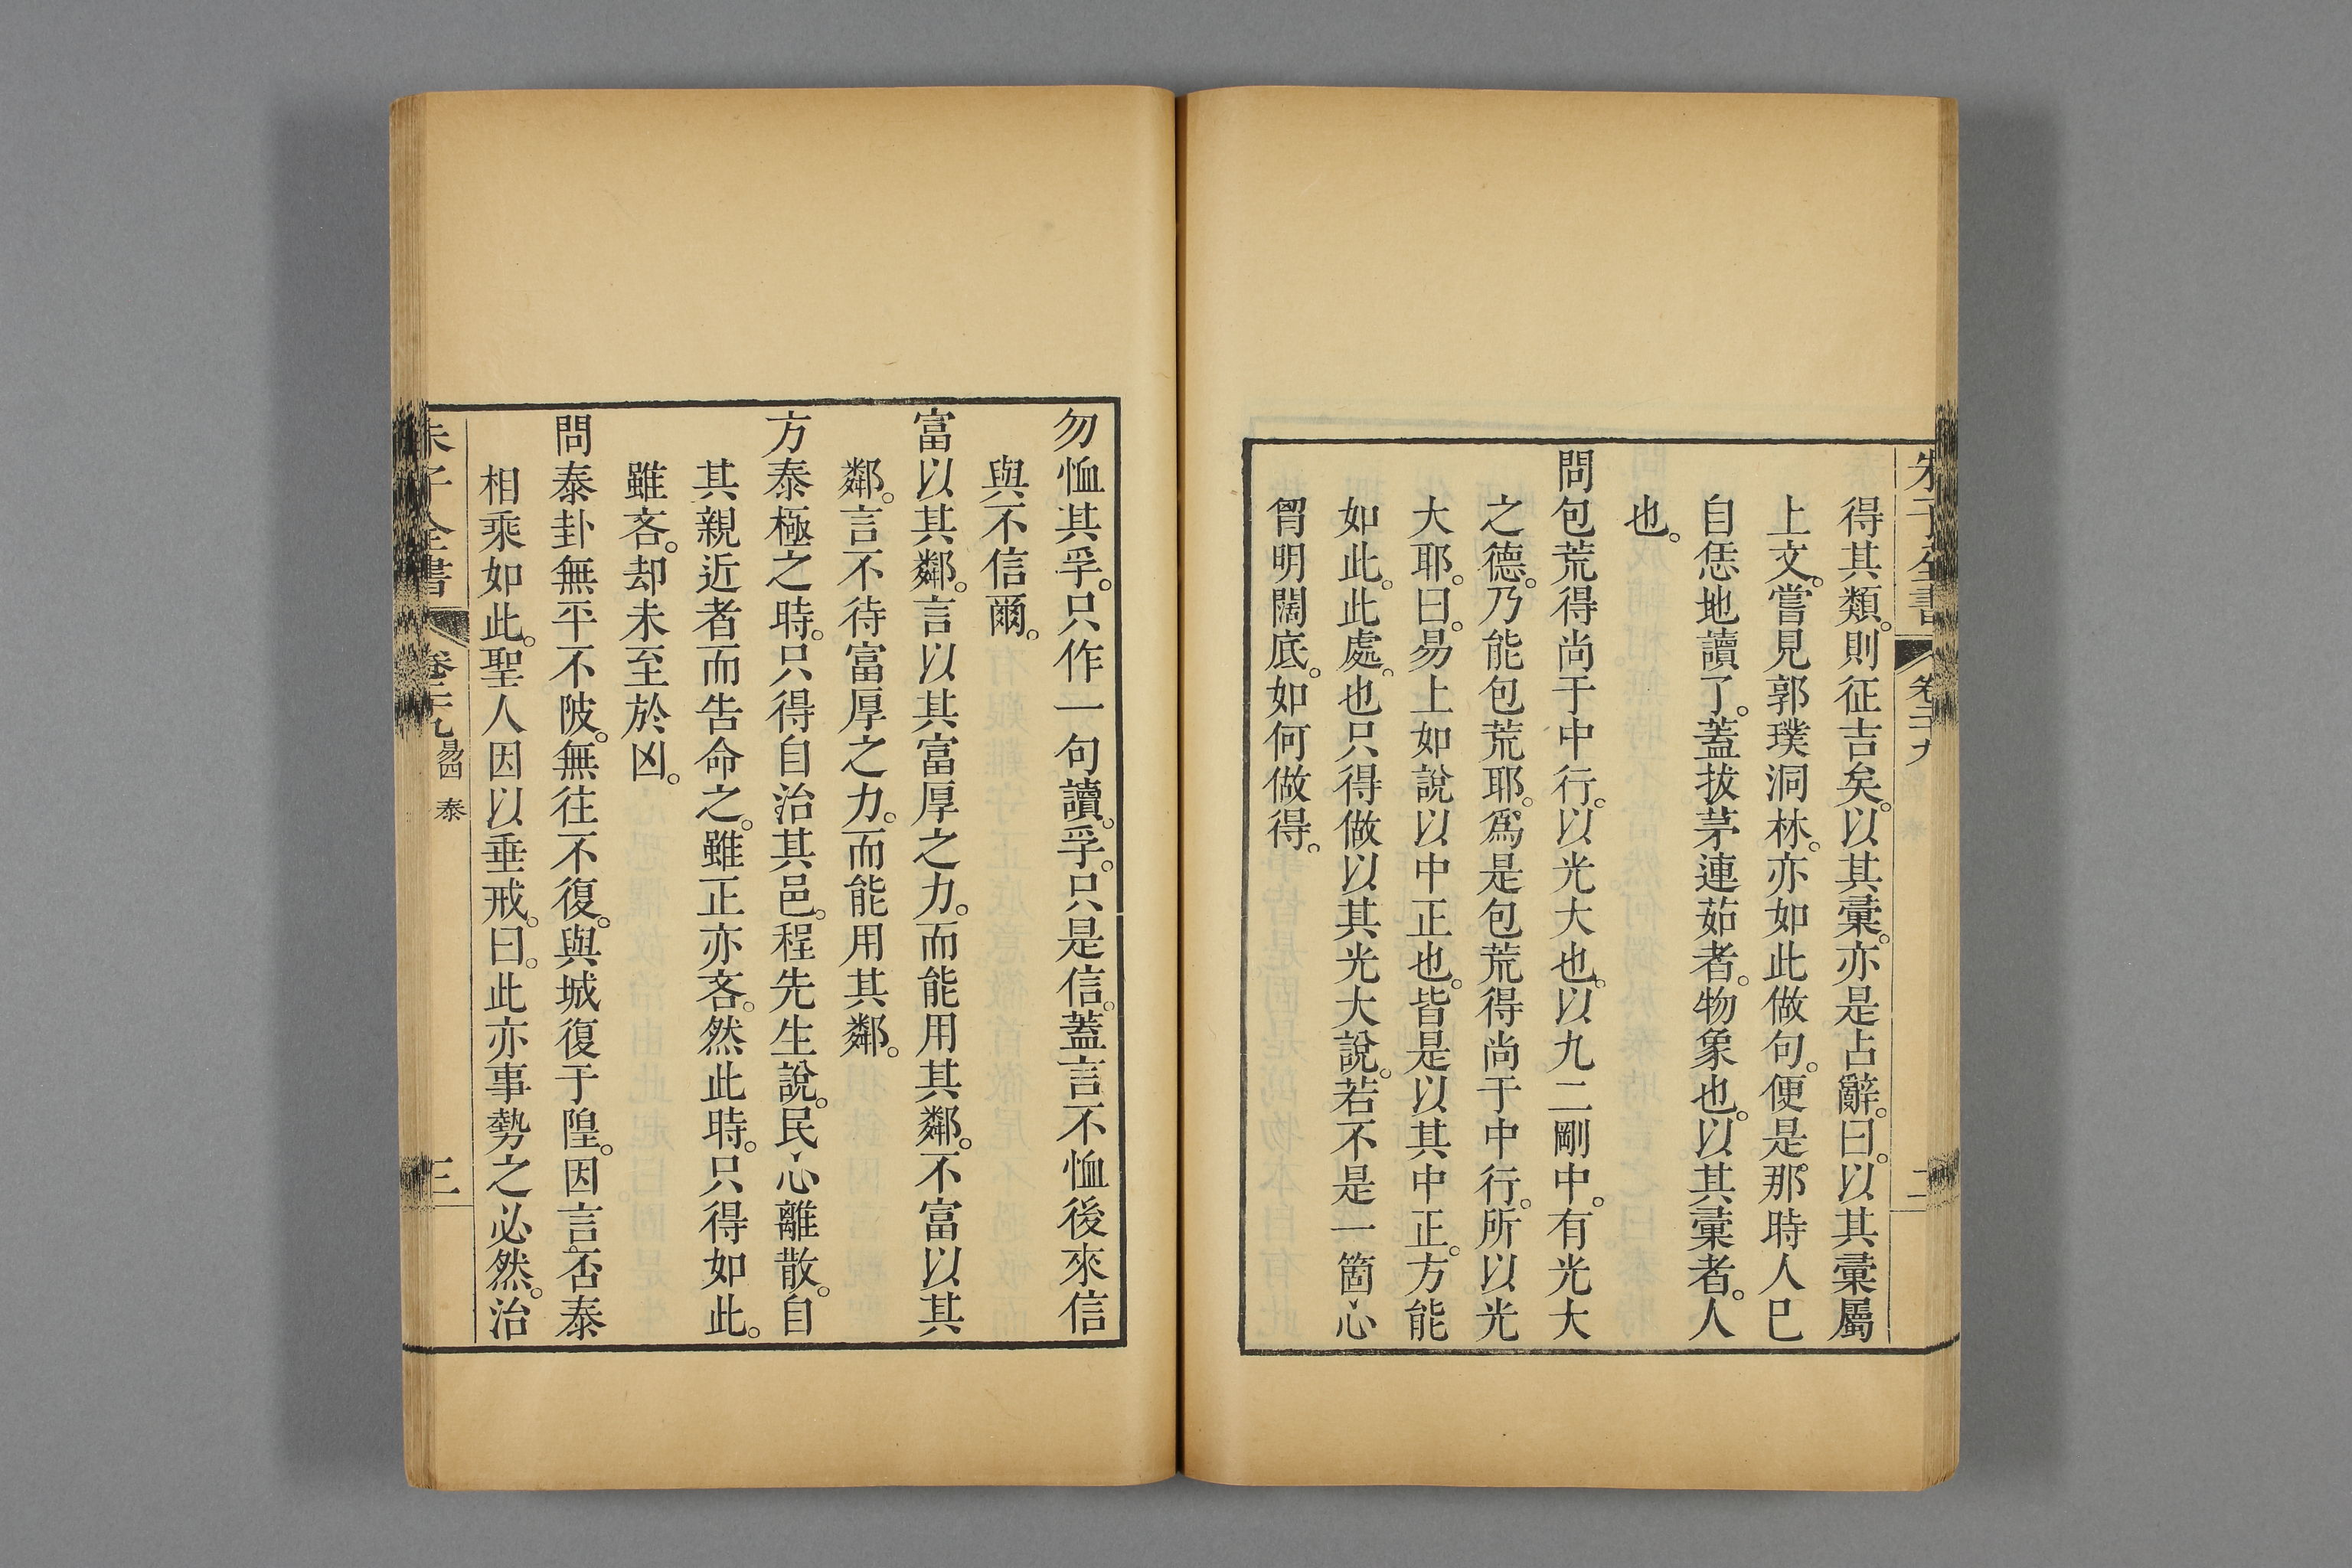 朱子全書 卷二十九 二
得其類。則征吉矣。以其彙。亦是占辭。曰。以其彙屬
上文。嘗見郭璞洞林。亦如此做句。便是那時人已
自恁地讀了。蓋拔茅連茹者。物象也。以其彙者。人
也。
問包荒得尚于中行。以光大也。以九二剛中。有光大
之德。乃能包荒耶。爲是包荒得尚于中行。所以光
大耶。曰。易上如說以中正也。皆是以其中正。方能
如此。此處。也只得做以其光大說。若不是一箇心
胷明闊底。如何做得。
勿恤其孚。只作一句讀。孚。只是信。蓋言不恤後來信
與不信爾。
富以其鄰。言以其富厚之力。而能用其鄰。不富以其
鄰。言不待富厚之力。而能用其鄰。
方泰極之時。只得自治其邑。程先生說。民心離散。自
其親近者而告命之。雖正亦吝。然此時。只得如此。
雖吝。却未至於凶。
問泰卦無平不陂。無往不復。與城復于隍。因言否泰
相乘如此。聖人因以垂戒。曰。此亦事勢之必然。治
朱子全書 卷二十九 易四 泰 三